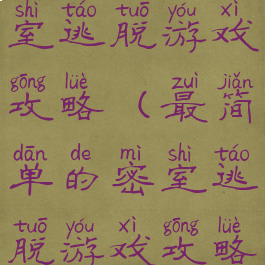 shì táo tuō yóu xì
室逃脱游戏
gōng lüè zuì jiǎn
攻略(最简
dān de mì shì táo
单的密室逃
tuō yóu xì gōng lüè
脱游戏攻略